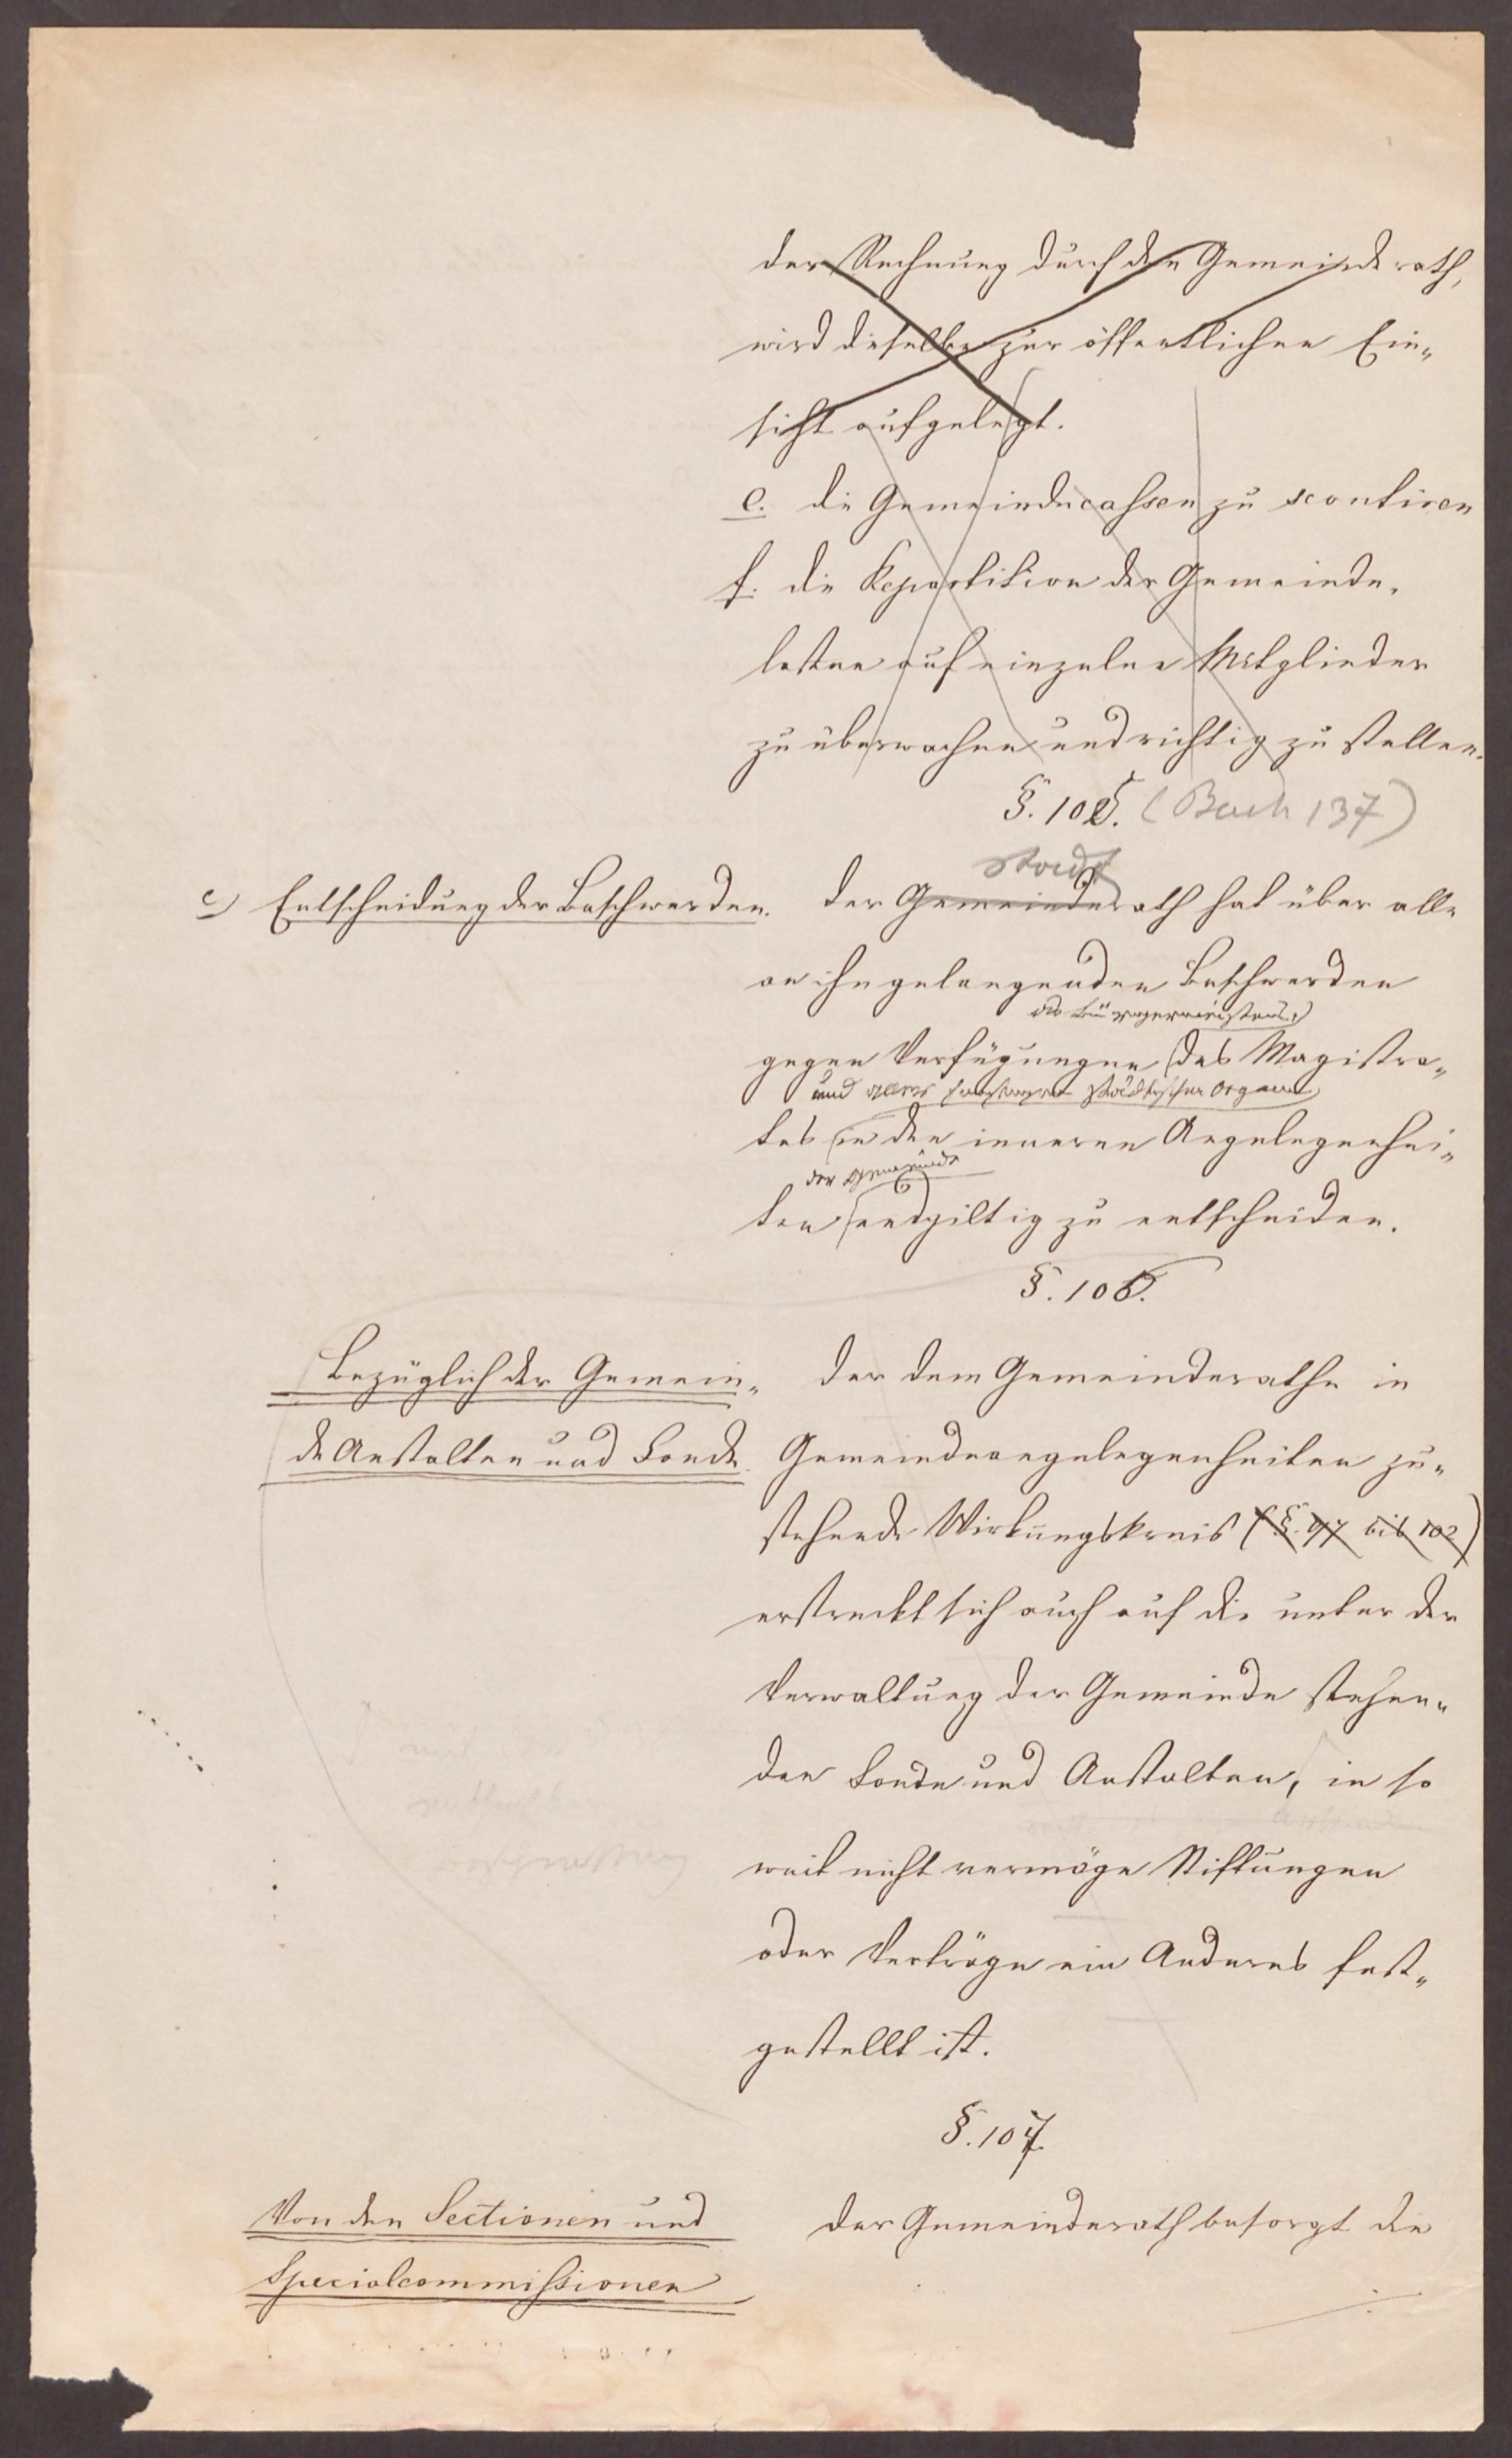 der Rechnung durch den Gemeinderath,
wird dieselbe zur öffentlichen Ein„
sicht aufgelegt.
e. die Gemeindecassen zu scontiren
f. die Repartition der Gemeinde„
lasten auf einzelne Mitglieder
zu überwachen und richtig zu stellen.
§. 105. (Bach 137)
Stadt
c) Entscheidung der Beschwerden.
Der Gemeinderath hat über alle
an ihn gelangenden Beschwerden
des Bürgermeisters,
gegen Verfügungen des Magistra„
und aller städtischer Organe
tes in den inneren Angelegenhei„
der Gemeinde
ten endgiltig zu entscheiden.
§. 106.
Bezüglich der Gemein„
de Anstalten und Fonde.
Der dem Gemeinderathe in
Gemeindeangelegenheiten zu„
stehende Wirkungskreis (§. 97 bis 102)
erstreckt sich auch auf die unter der
Verwaltung der Gemeinde stehen„
den Fonde und Anstalten, in so
weit nicht vermöge Stiftungen
oder Verträge ein Anderes fest„
gestellt ist.
§. 107.
Von den Sectionen und
Specialcommissionen
Der Gemeinderath besorgt die